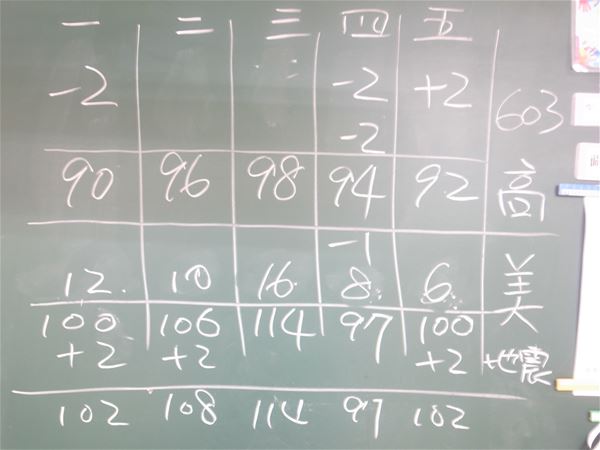 一 二 三 四 五
-2 -2 +2 603
-2
90 96 98 94 92 高
-1
12 10 16 8 6 美
100 106 114 97 100
+2 +2 +2 地震
102 108 114 97 102